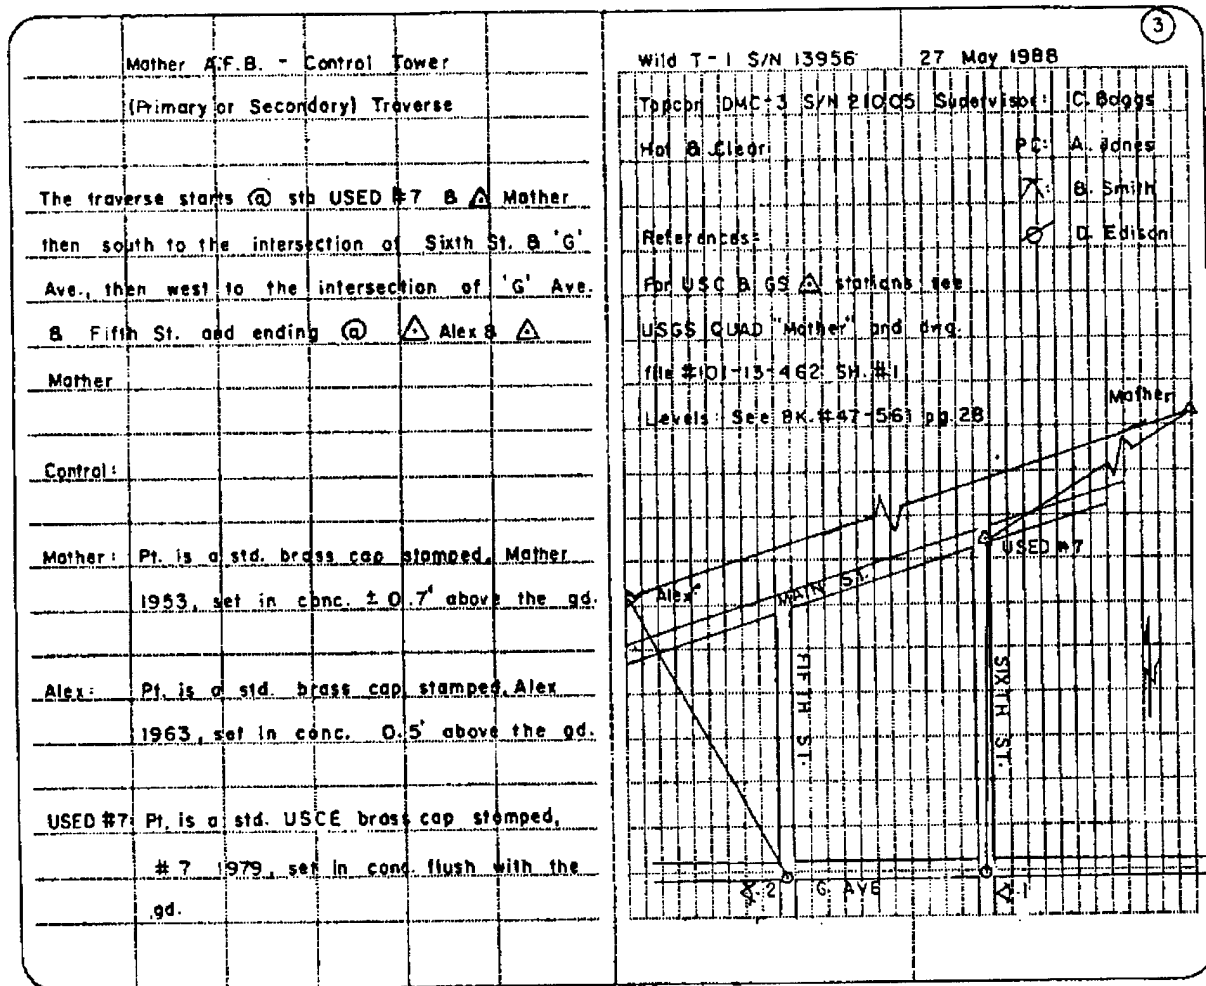 3
Mather A.F.B. - Control Tower
(Primary or Secondary) Traverse
The traverse starts @ sta USED #7 & △ Mather
then south to the intersection of Sixth St. & 'G'
Ave., then west to the intersection of 'G' Ave.
& Fifth St. and ending @ △ Alex & △
Mather
Control:
Mather: Pt. is a std. brass cap stamped, Mather
1953, set in conc. ± 0.7' above the gd.
Alex: Pt. is a std. brass cap stamped, Alex
1963, set in conc. 0.5' above the gd.
USED #7: Pt. is a std. USCE brass cap stamped,
# 7 1979, set in conc. flush with the
gd.
Wild T-1 S/N 13956 27 May 1988
Topcon DMC-3 S/N 21005 Supervisor: C. Boggs
Hot & Clear PC: A. Jones
B. Smith
References: D. Edison
For USC & GS △ stations see
USGS QUAD "Mather" and dwg.
file #101-13-462 SH. #1
Levels: See BK. #47-561 pg. 28
Mather
USED #7
Alex
MAIN ST.
FIFTH ST.
SIXTH ST.
2
G AVE
1